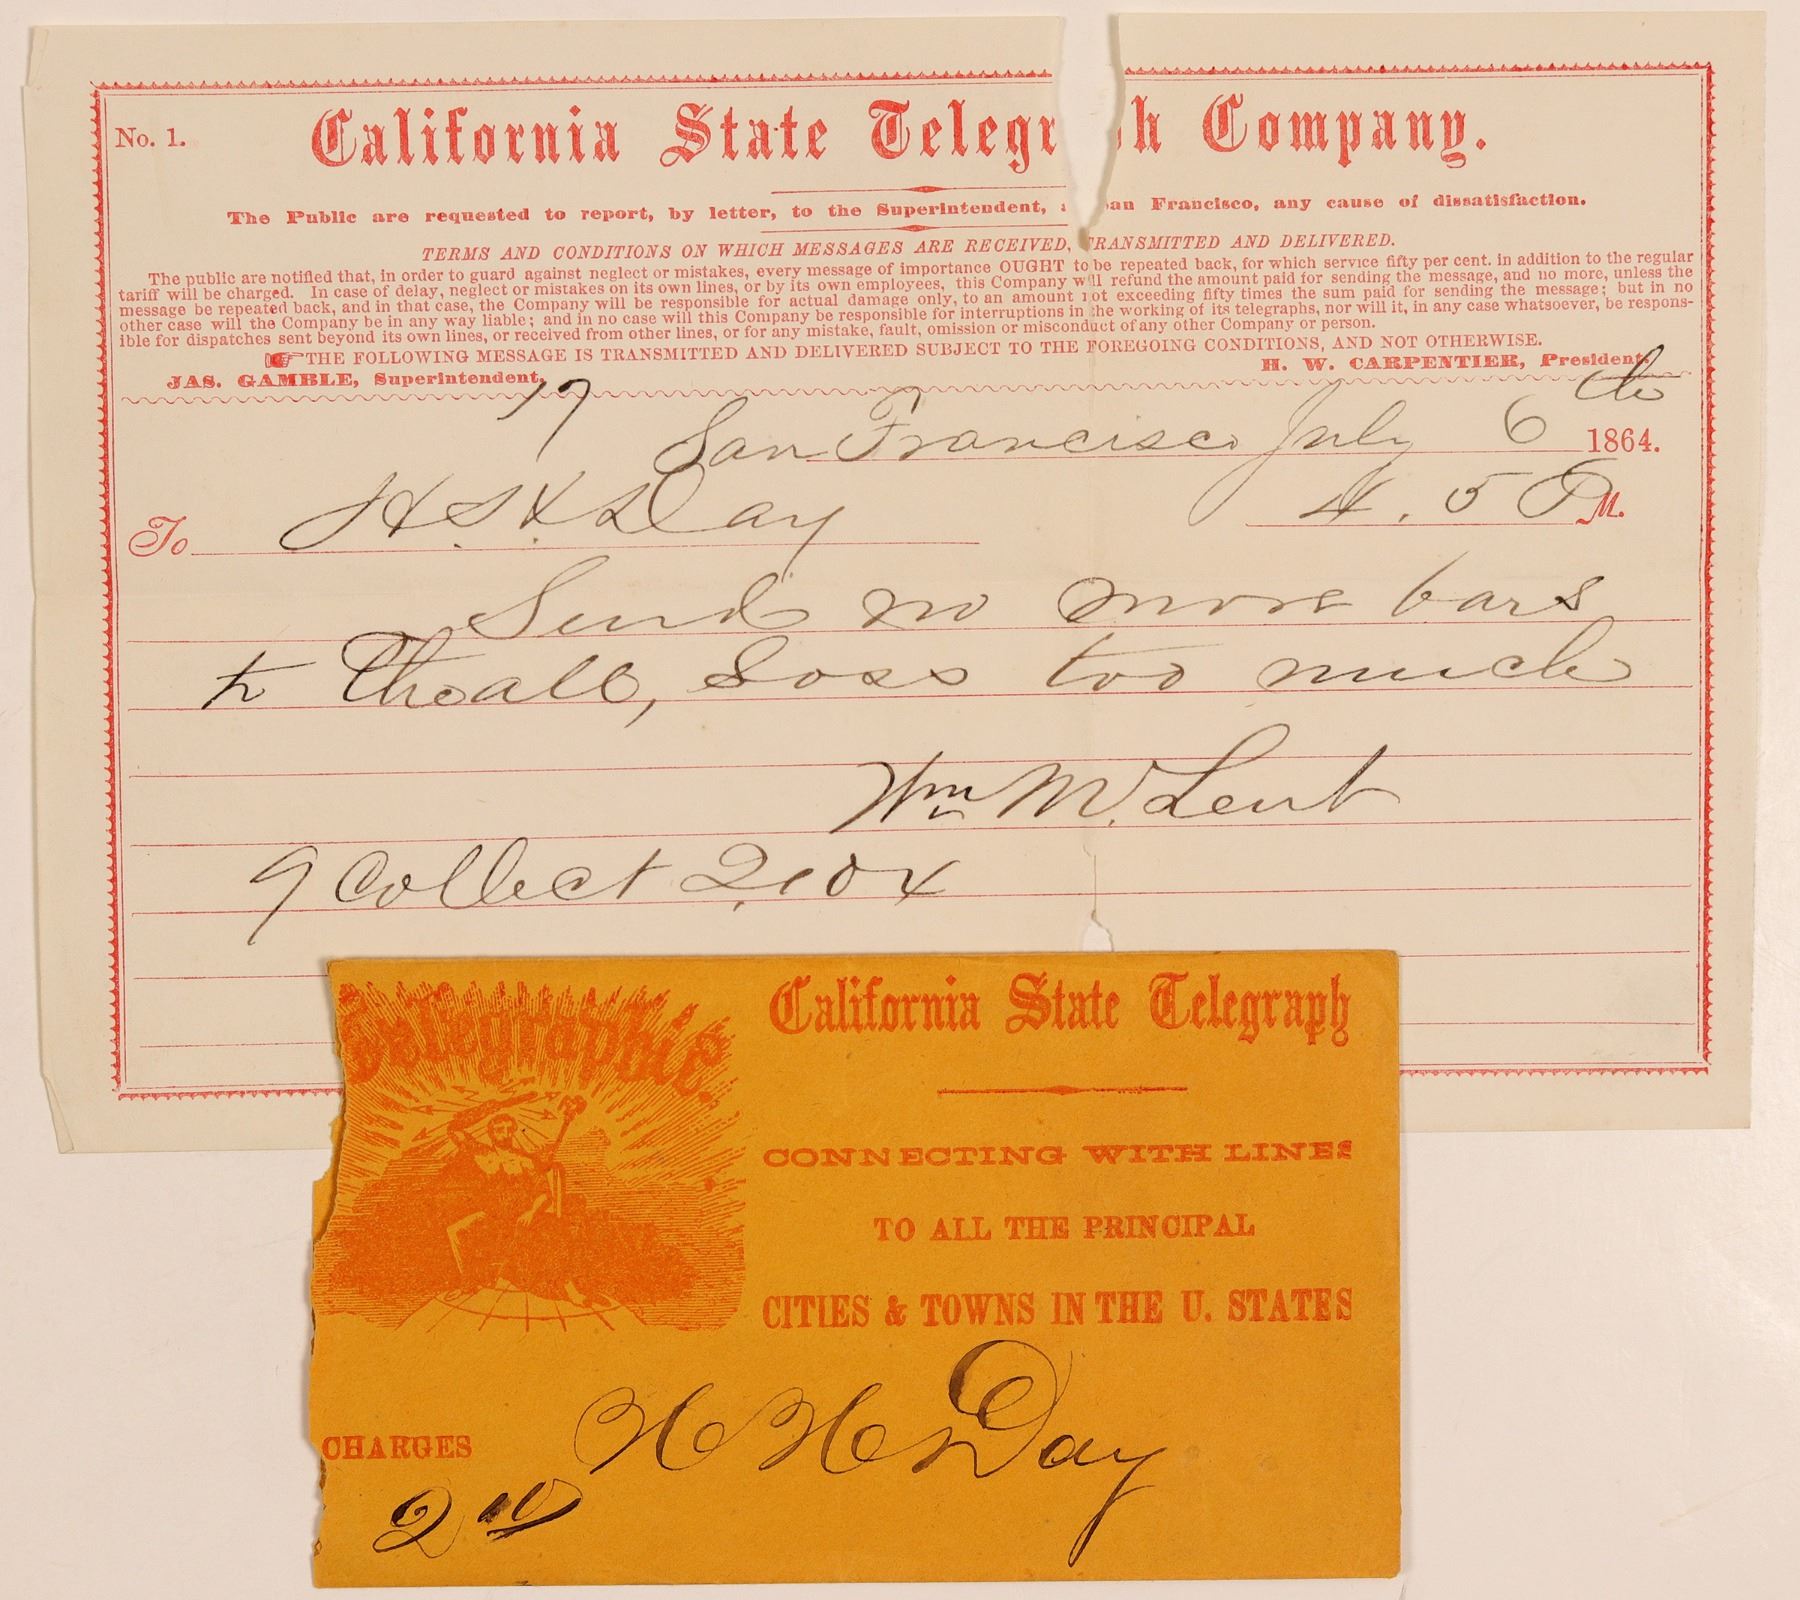 No. 1. California State Telegr h Company.
The Public are requested to report, by letter, to the Superintendent, an Francisco, any cause of dissatisfaction.
TERMS AND CONDITIONS ON WHICH MESSAGES ARE RECEIVED, TRANSMITTED AND DELIVERED.
The public are notified that, in order to guard against neglect or mistakes, every message of importance OUGHT to be repeated back, for which service fifty per cent. in addition to the regular
tariff will be charged. In case of delay, neglect or mistakes on its own lines, or by its own employees, this Company will refund the amount paid for sending the message, and no more, unless the
message be repeated back, and in that case, the Company will be responsible for actual damage only, to an amount not exceeding fifty times the sum paid for sending the message; but in no
other case will the Company be in any way liable; and in no case will this Company be responsible for interruptions in the working of its telegraphs, nor will it, in any case whatsoever, be respons-
ible for dispatches sent beyond its own lines, or received from other lines, or for any mistake, fault, omission or misconduct of any other Company or person.
THE FOLLOWING MESSAGE IS TRANSMITTED AND DELIVERED SUBJECT TO THE FOREGOING CONDITIONS, AND NOT OTHERWISE.
JAS. GAMBLE, Superintendent. H. W. CARPENTIER, President.
17 San Francisco July 6th 1864.
To Day 4.5 P M.
Send no more bars
to Theall, Loss too much
Wm M. Lent
9 Collect 2.10
Telegraphic.
California State Telegraph
CONNECTING WITH LINES
TO ALL THE PRINCIPAL
CITIES & TOWNS IN THE U. STATES
CHARGES Day
2